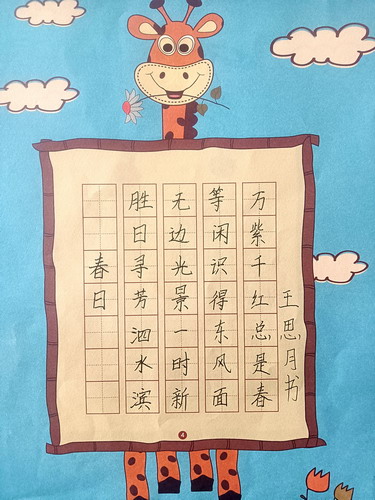 春日
胜日寻芳泗水滨
无边光景一时新
等闲识得东风面
万紫千红总是春
王思月书
4